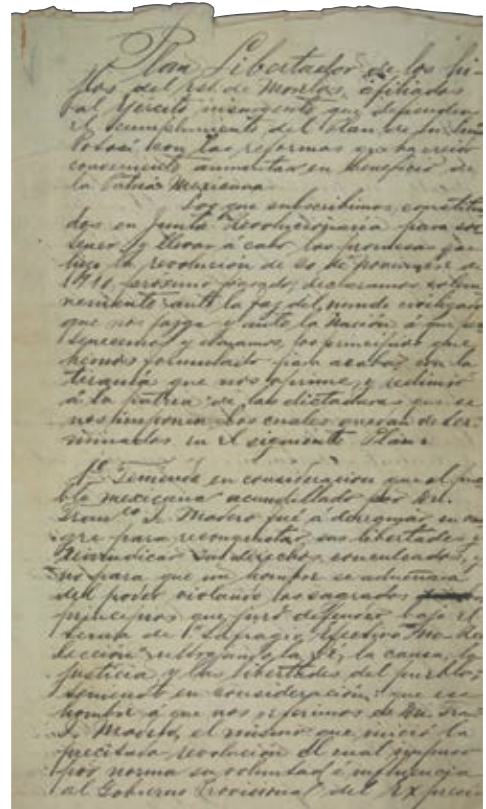 Plan Libertador de los hi-
jos del Est. de Morelos, afiliados
al Ejército insurgente que defienden
el cumplimiento del Plan de San Luis
Potosí con las reformas que ha creido
conveniente aumentar en beneficio de
la Patria Mexicana.
Los que subscribimos, constitui-
dos en Junta Revolucionaria para sos-
tener y llevar a cabo las promesas que
hizo la revolución de 20 de noviembre de
1910, próximo pasado, declaramos solem-
nemente ante la faz del mundo civilizado
que nos juzga y ante la Nación, á que per-
tenecemos y amamos, los principios que
hemos formulado para acabar con la
tiranía que nos oprime y redimir
á la patria de las dictaduras que se
nos imponen los cuales quedan deter-
minados en el siguiente Plan:
1o. Teniendo en consideracion que el pue-
blo mexicano acaudillado por Dn.
Franco. I. Madero fué á derramar su san-
gre para reconquistar sus libertades y
reivindicar sus derechos conculcados, y
no para que un hombre se adueñara
del poder violando los sagrados
principios que juró defender bajo el
lema de "Sufragio Efectivo" "No Ree-
lección" ultrajando la fé, la causa, la
justicia y las libertades del pueblo;
teniendo en consideración: que ese
hombre á que nos referimos es Dn. Fran.
I. Madero, el mismo que inició la
precitada revolución el cual impuso
por norma su voluntad é influencia
al Gobierno Provisional del Ex presi-